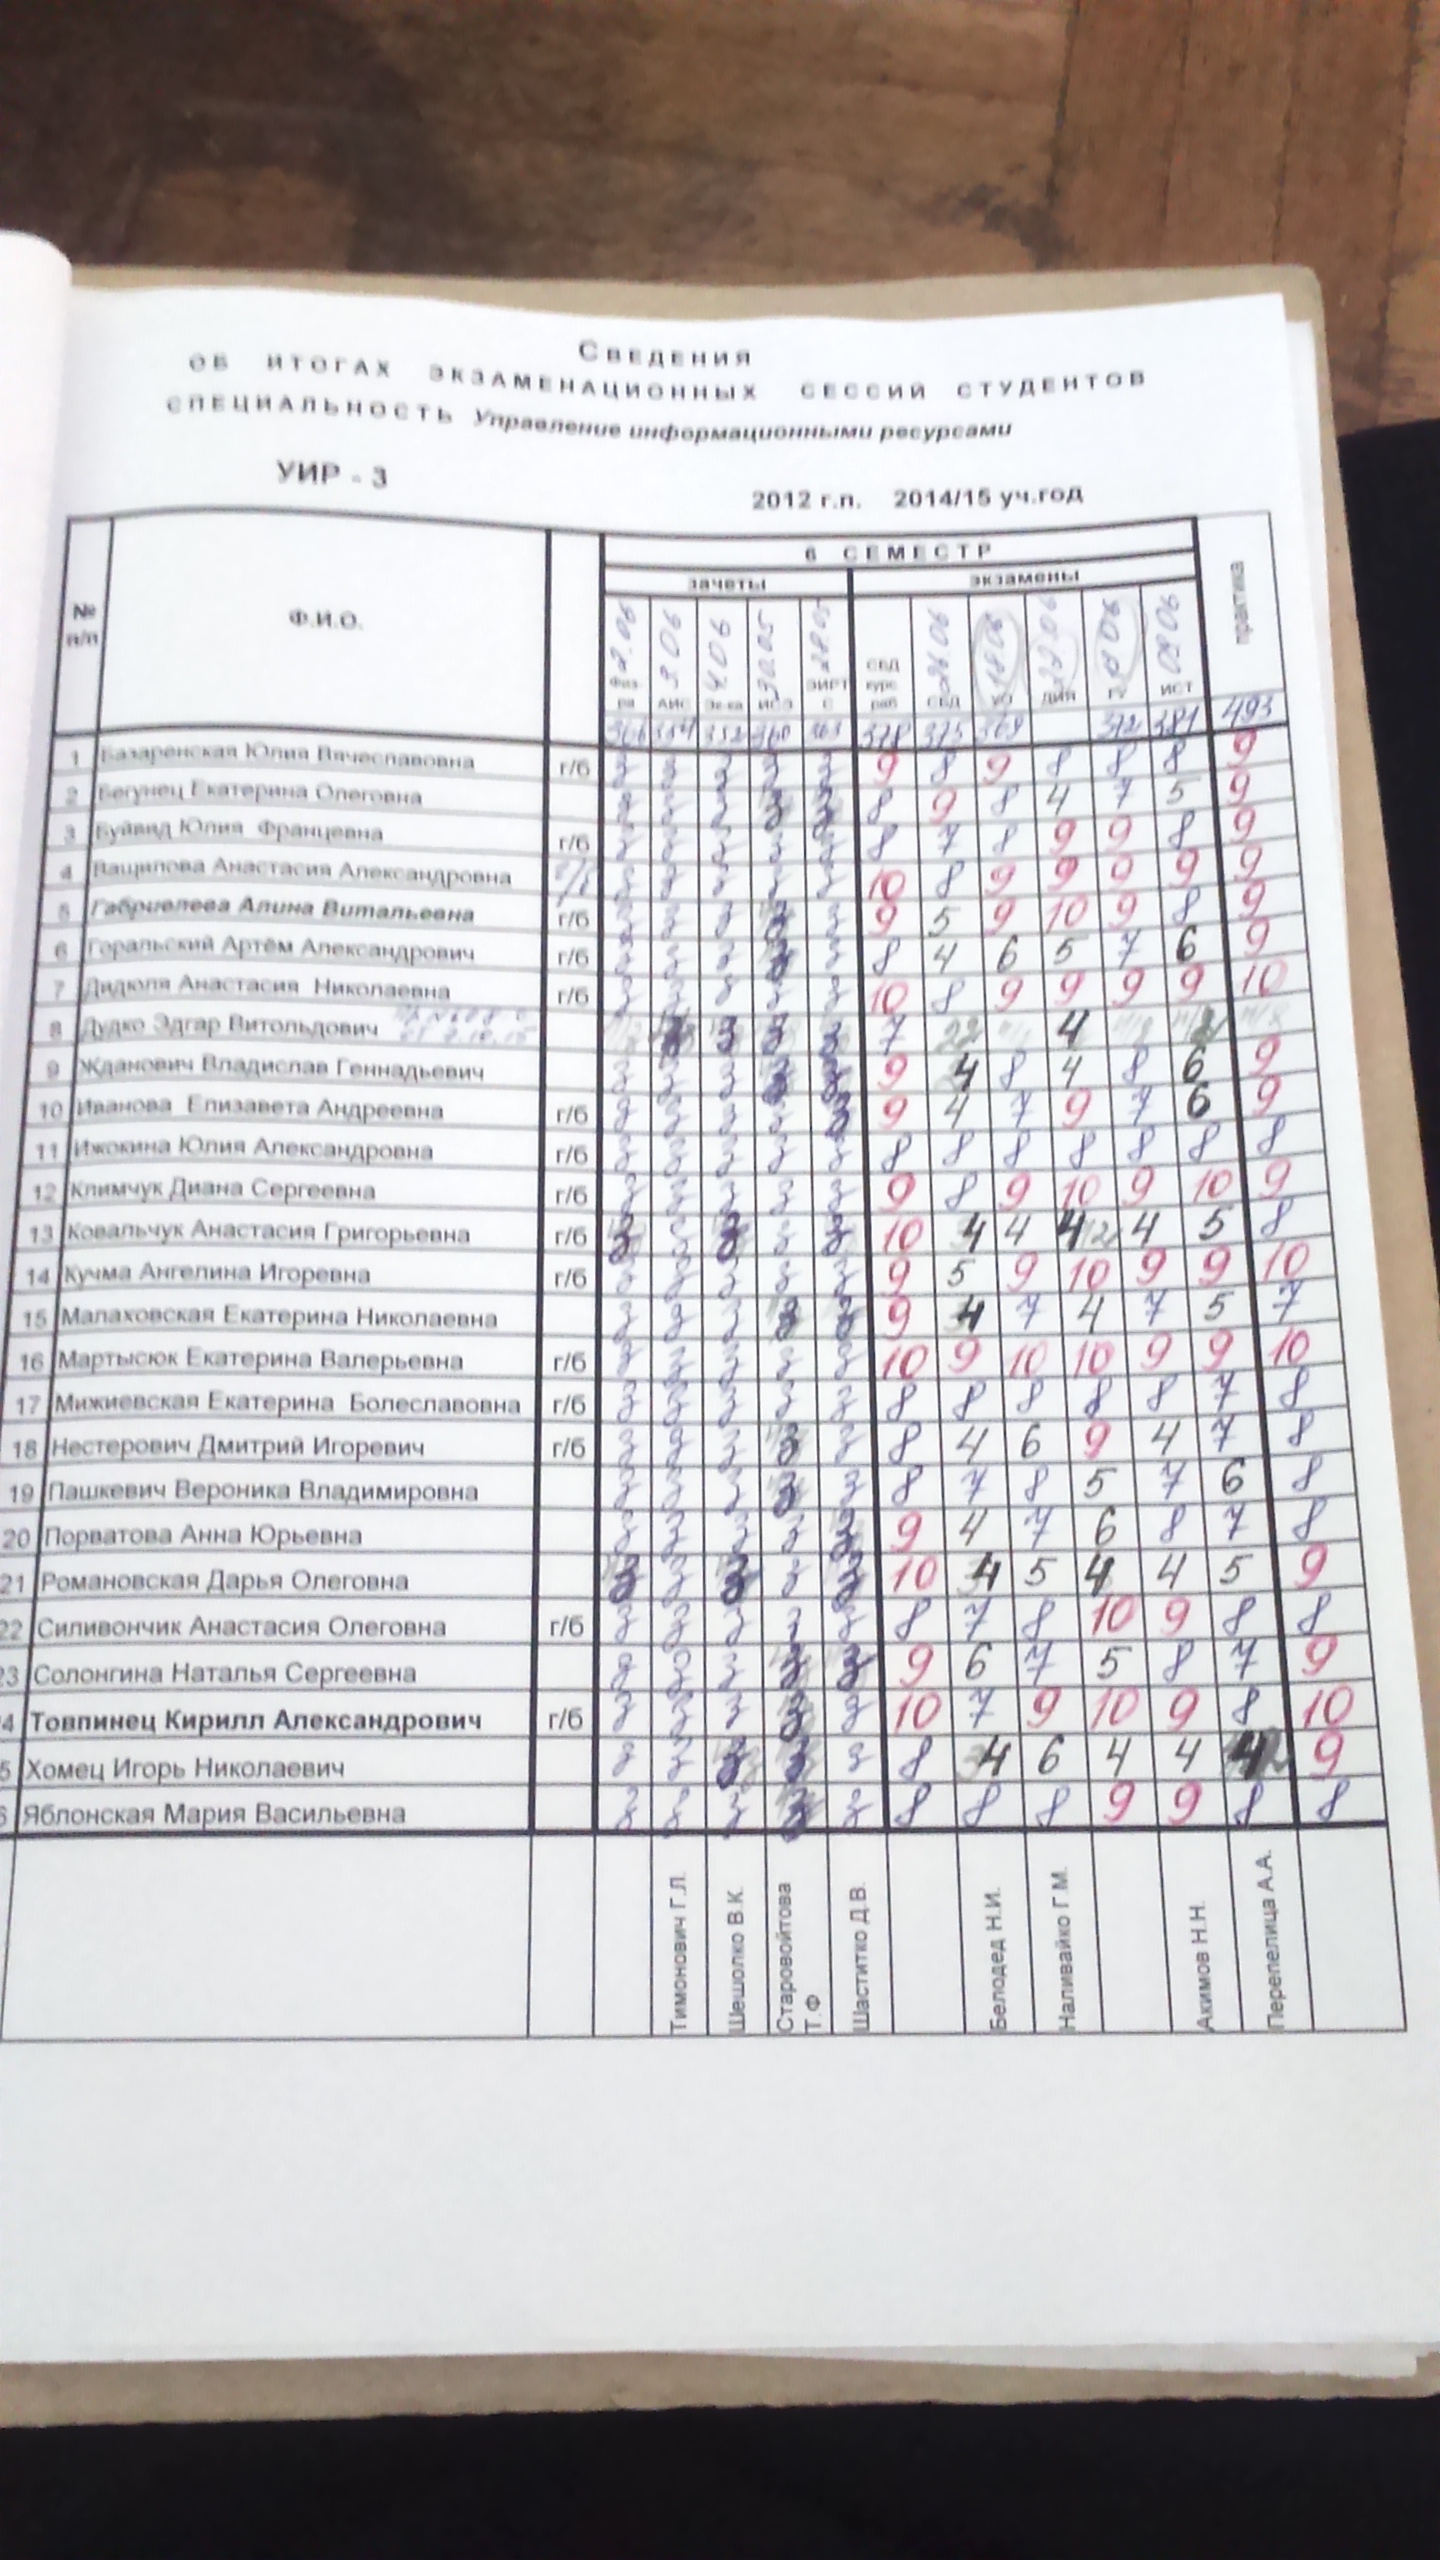 Сведения
ОБ ИТОГАХ ЭКЗАМЕНАЦИОННЫХ СЕССИЙ СТУДЕНТОВ
СПЕЦИАЛЬНОСТЬ Управление информационными ресурсами
УИР - 3
2012 г.п. 2014/15 уч.год
6 СЕМЕСТР
зачеты экзамены практика
№ п/п Ф.И.О.
2.06 3.06 4.06 30.05 28.05 26.06 18.06 22.06 18.06 02.06
Физ-ра АИС Эк-ка ИСЭ ЭИРТС СБД курс раб СБД УО ДИЯ ГУ ИСТ
366 354 352 360 363 378 375 369 372 381 493
1 Базаренская Юлия Вячеславовна г/б з з з з з 9 8 9 8 8 8 9
2 Бегунец Екатерина Олеговна з з з з з 8 9 8 4 7 5 9
3 Буйвид Юлия Францевна г/б з з з з з 8 7 8 9 9 8 9
4 Ващилова Анастасия Александровна г/б з з з з з 10 8 9 9 9 9 9
5 Габриелева Алина Витальевна г/б з з з з з 9 5 9 10 9 8 9
6 Горальский Артём Александрович г/б з з з з з 8 4 6 5 7 6 9
7 Дидюля Анастасия Николаевна г/б з з з з з 10 8 9 9 9 9 10
8 Дудко Эдгар Витольдович з з з з 7 4
9 Жданович Владислав Геннадьевич з з з з з 9 4 8 4 8 6 9
10 Иванова Елизавета Андреевна г/б з з з з з 9 4 7 9 7 6 9
11 Ижокина Юлия Александровна г/б з з з з з 8 8 8 8 8 8 8
12 Климчук Диана Сергеевна г/б з з з з з 9 8 9 10 9 10 9
13 Ковальчук Анастасия Григорьевна г/б з з з з з 10 4 4 4 4 5 8
14 Кучма Ангелина Игоревна г/б з з з з з 9 5 9 10 9 9 10
15 Малаховская Екатерина Николаевна з з з з з 9 4 7 4 7 5 7
16 Мартысюк Екатерина Валерьевна г/б з з з з з 10 9 10 10 9 9 10
17 Мижиевская Екатерина Болеславовна г/б з з з з з 8 8 8 8 8 7 8
18 Нестерович Дмитрий Игоревич г/б з з з з з 8 4 6 9 4 7 8
19 Пашкевич Вероника Владимировна з з з з з 8 7 8 5 7 6 8
20 Порватова Анна Юрьевна з з з з з 9 4 7 6 8 7 8
21 Романовская Дарья Олеговна з з з з з 10 4 5 4 4 5 9
22 Силивончик Анастасия Олеговна г/б з з з з з 8 7 8 10 9 8 8
23 Солонгина Наталья Сергеевна з з з з з 9 6 7 5 8 7 9
4 Товпинец Кирилл Александрович г/б з з з з з 10 7 9 10 9 8 10
5 Хомец Игорь Николаевич з з з з з 8 4 6 4 4 4 9
6 Яблонская Мария Васильевна з з з з з 8 8 8 9 9 8 8
Тимонович Г.Л.
Шешолко В.К.
Старовойтова Т.Ф
Шаститко Д.В.
Белодед Н.И.
Наливайко Г.М.
Акимов Н.Н.
Перепелица А.А.